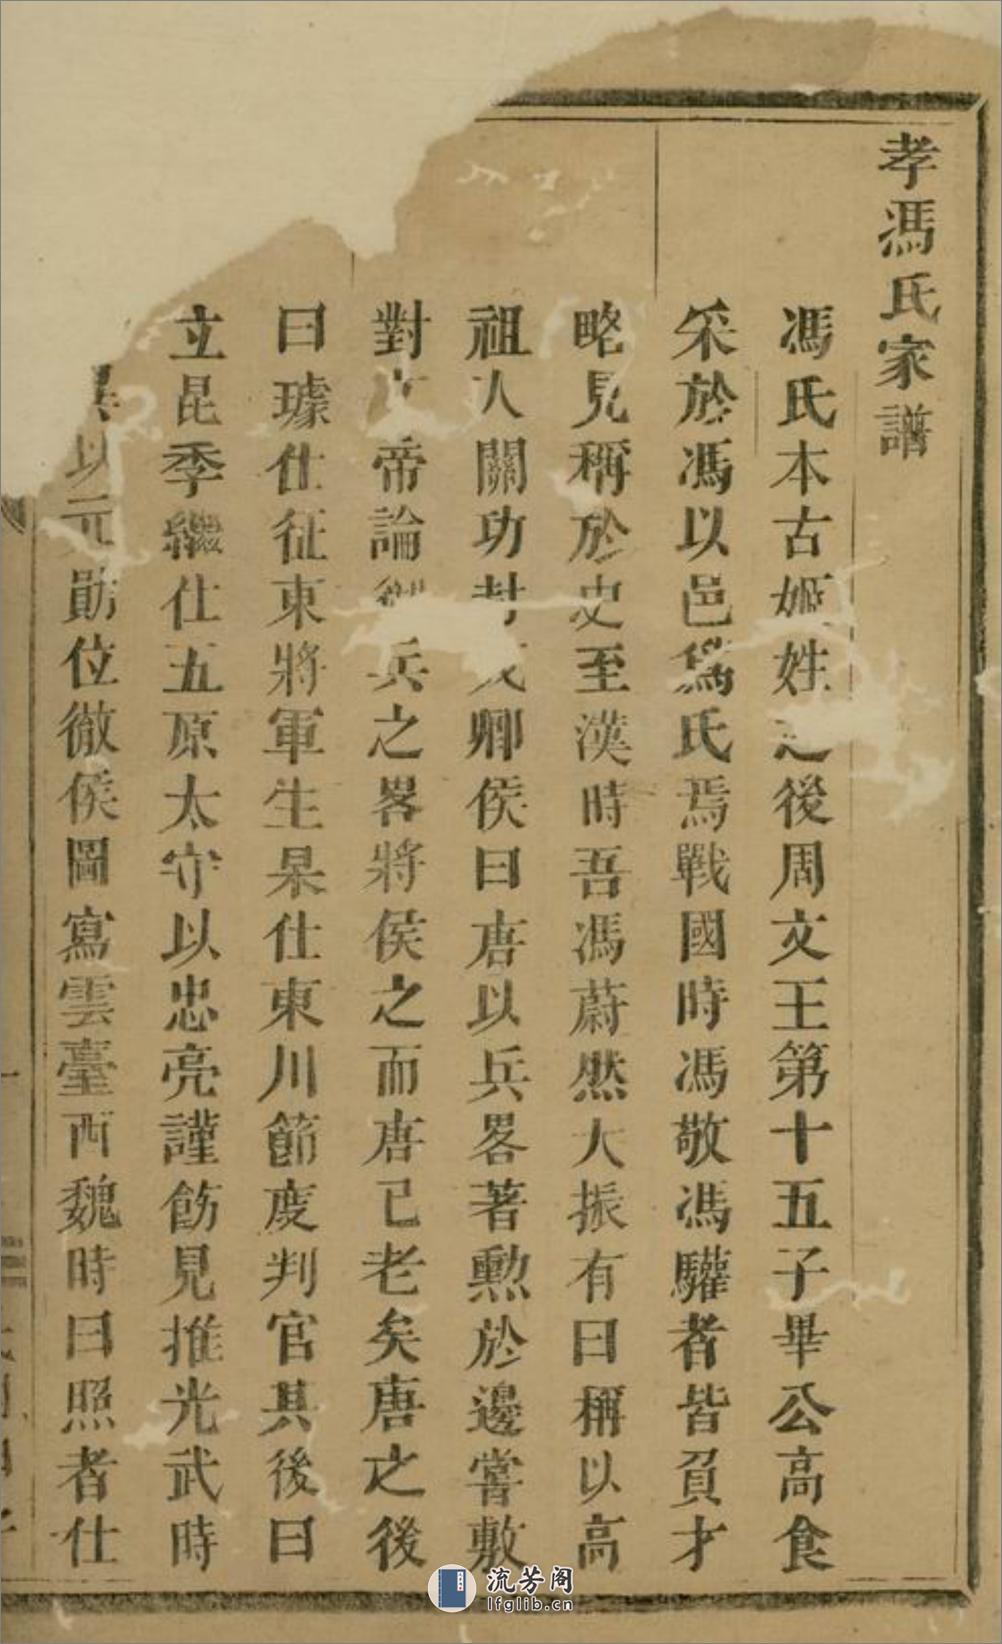 孝馮氏家譜
馮氏本古姬姓之後周文王第十五子畢公高食
采於馮以邑爲氏焉戰國時馮敬馮驩者皆負才
略見稱於史至漢時吾馮蔚然大振有曰稱以高
祖人關功封 卿侯曰唐以兵畧著勲於邊嘗敷
對 帝論 兵之畧將侯之而唐已老矣唐之後
曰璩仕征東將軍生杲仕東川節度判官其後曰
立昆季繼仕五原太守以忠亮謹飭見推光武時
異以元勛位徹侯圖寫雲臺西魏時曰照者仕
流芳阁
lfglib.cn